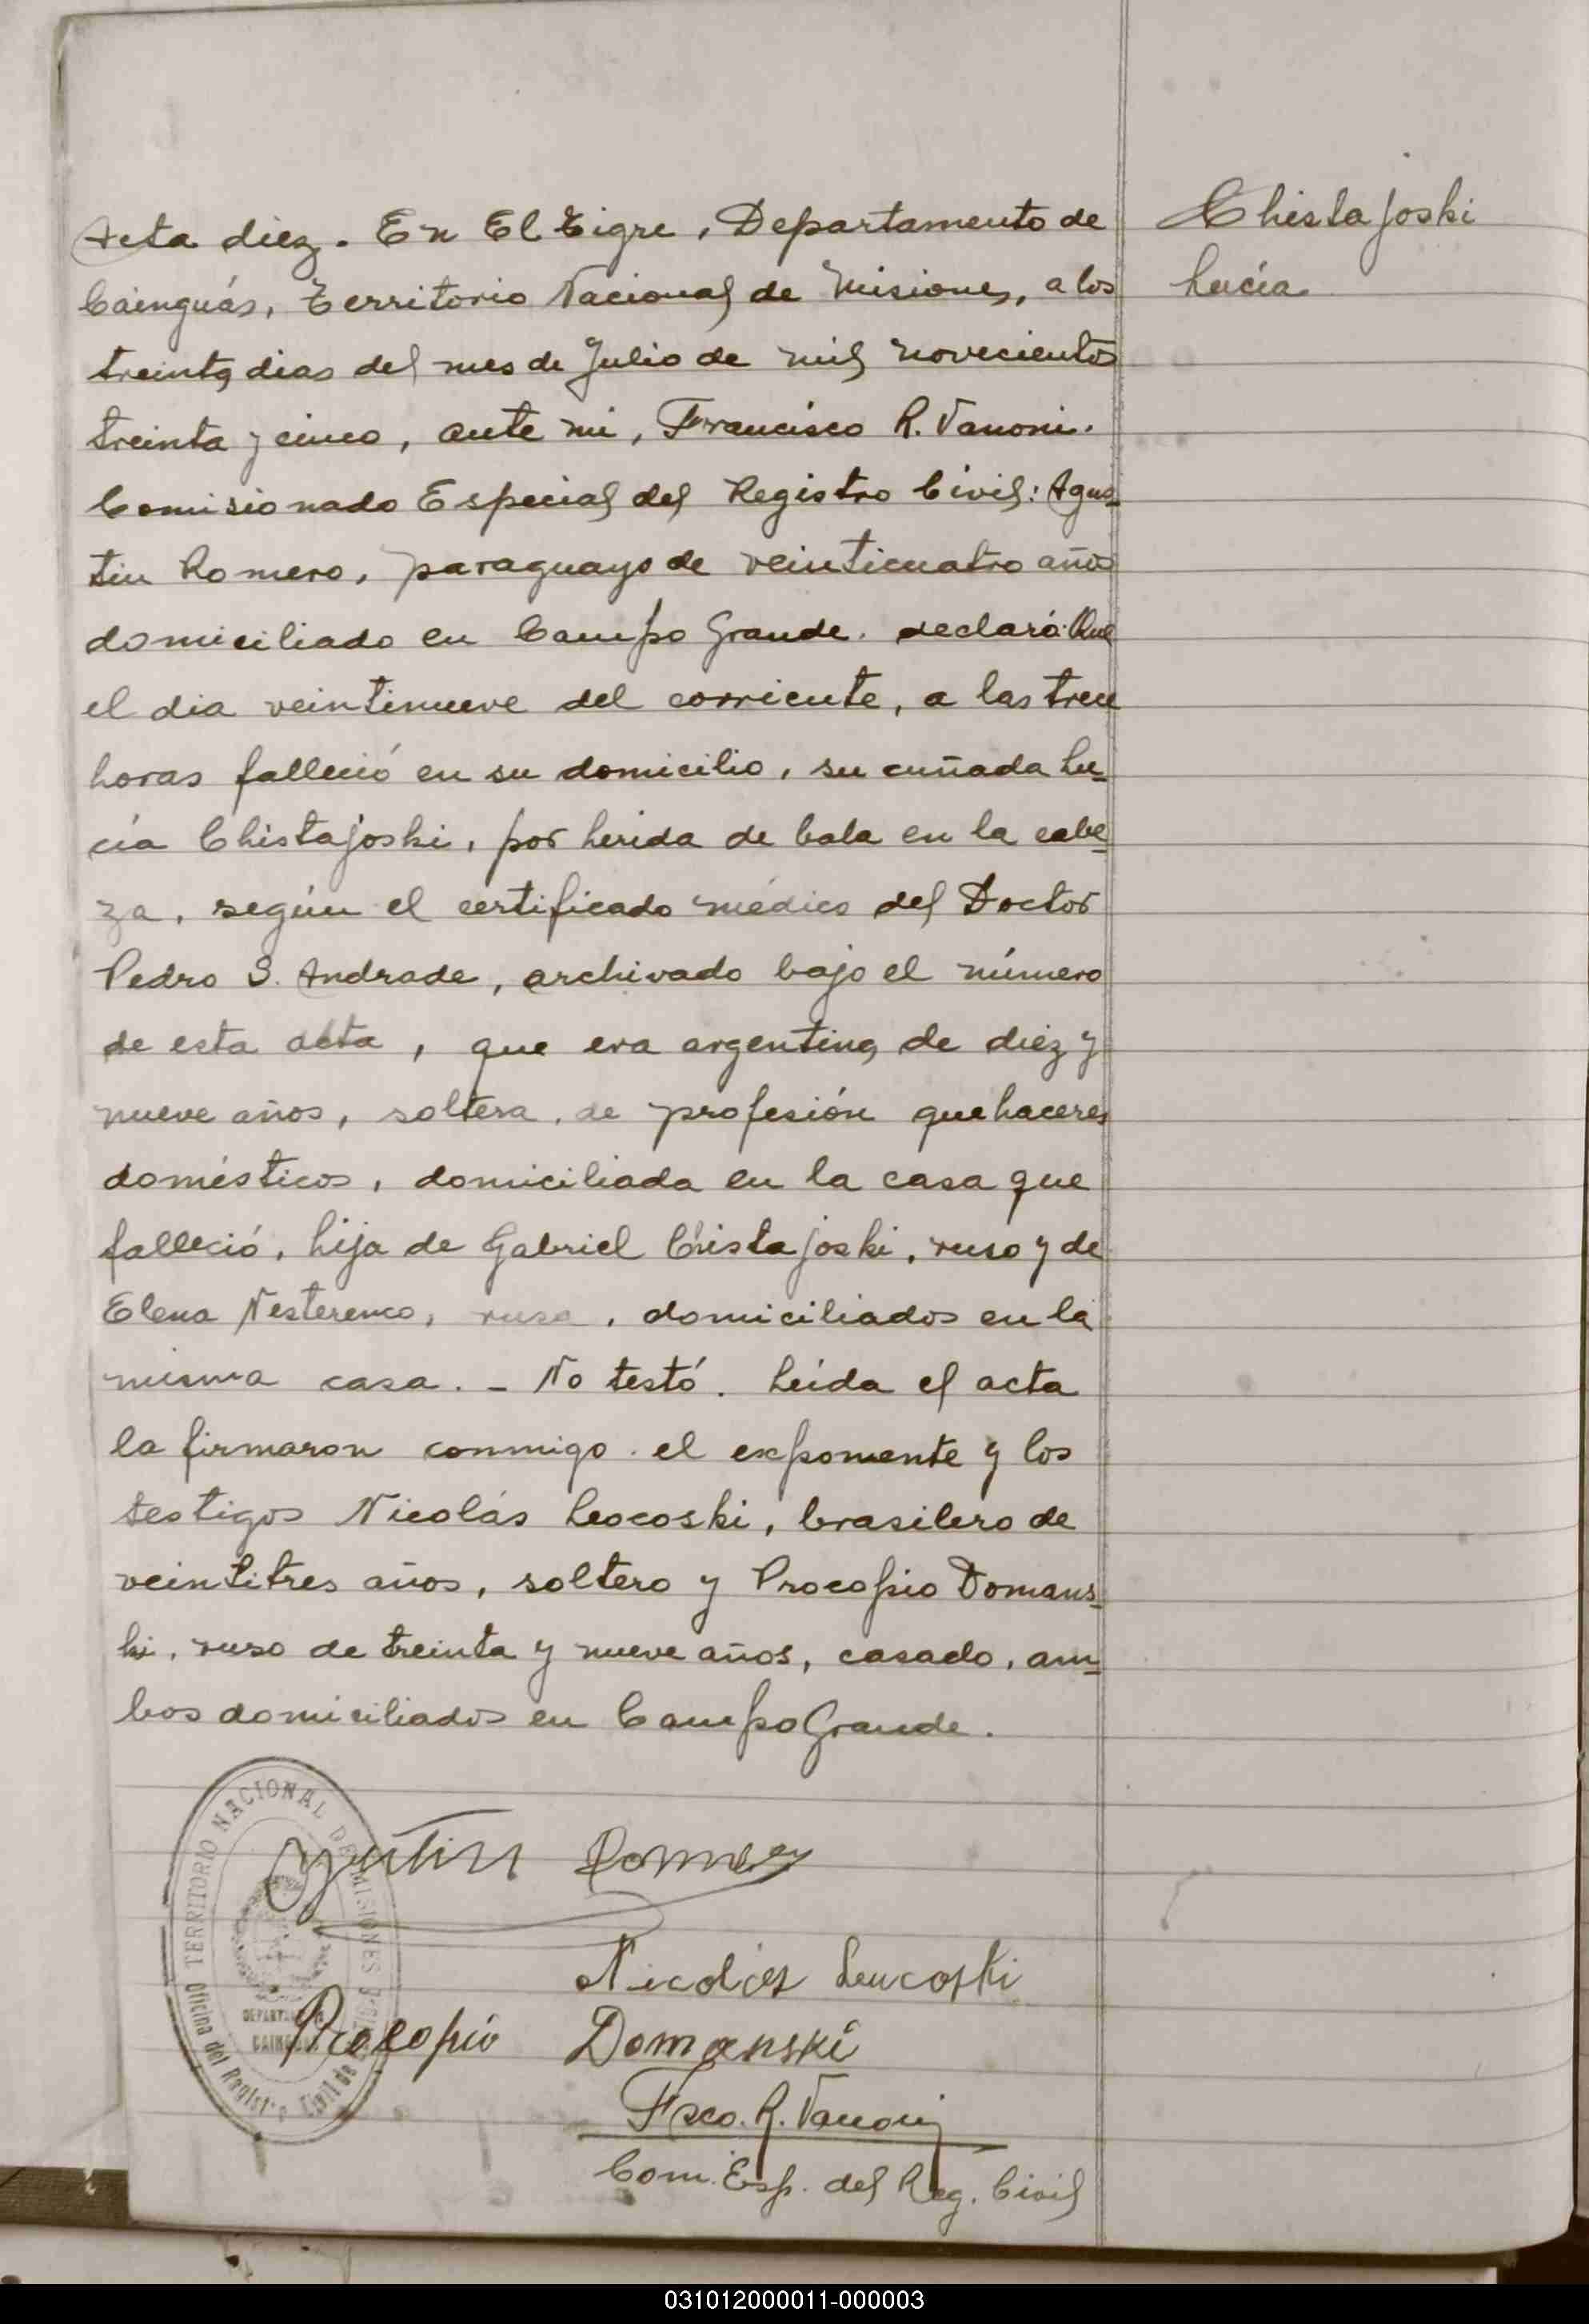 Acta diez. En El Tigre, Departamento de
Cainguás, Territorio Nacional de Misiones, a los
treinta dias del mes de Julio de mil novecientos
treinta y cinco, ante mi, Francisco R. Vanoni.
Comisionado Especial del Registro Civil: Agus-
tin Romero, paraguayo de veinticuatro años
domiciliado en Campo Grande. declaró: Que
el dia veintinueve del corriente, a las trece
horas falleció en su domicilio, su cuñada Lu-
cía Chistajoski, por herida de bala en la cabe-
za, según el certificado médico del Doctor
Pedro S. Andrade, archivado bajo el número
de esta acta, que era argentina, de diez y
nueve años, soltera, de profesión quehaceres
domésticos, domiciliada en la casa que
falleció, hija de Gabriel Chistajoski, ruso y de
Elena Nesterenco, rusa, domiciliados en la
misma casa. - No testó. Leída el acta
la firmaron conmigo el exponente y los
testigos Nicolás Leocoski, brasilero de
veintitres años, soltero y Procopio Domans-
ki, ruso de treinta y nueve años, casado, am-
bos domiciliados en Campo Grande.
Chistajoski
Lucía
TERRITORIO NACIONAL DE MISIONES
Oficina del Registro Civil de
Agustin Romero
Nicolás Leucoski
Procopio Domanski
Fsco. R. Vanoni
Com. Esp. del Reg. Civil
031012000011-000003